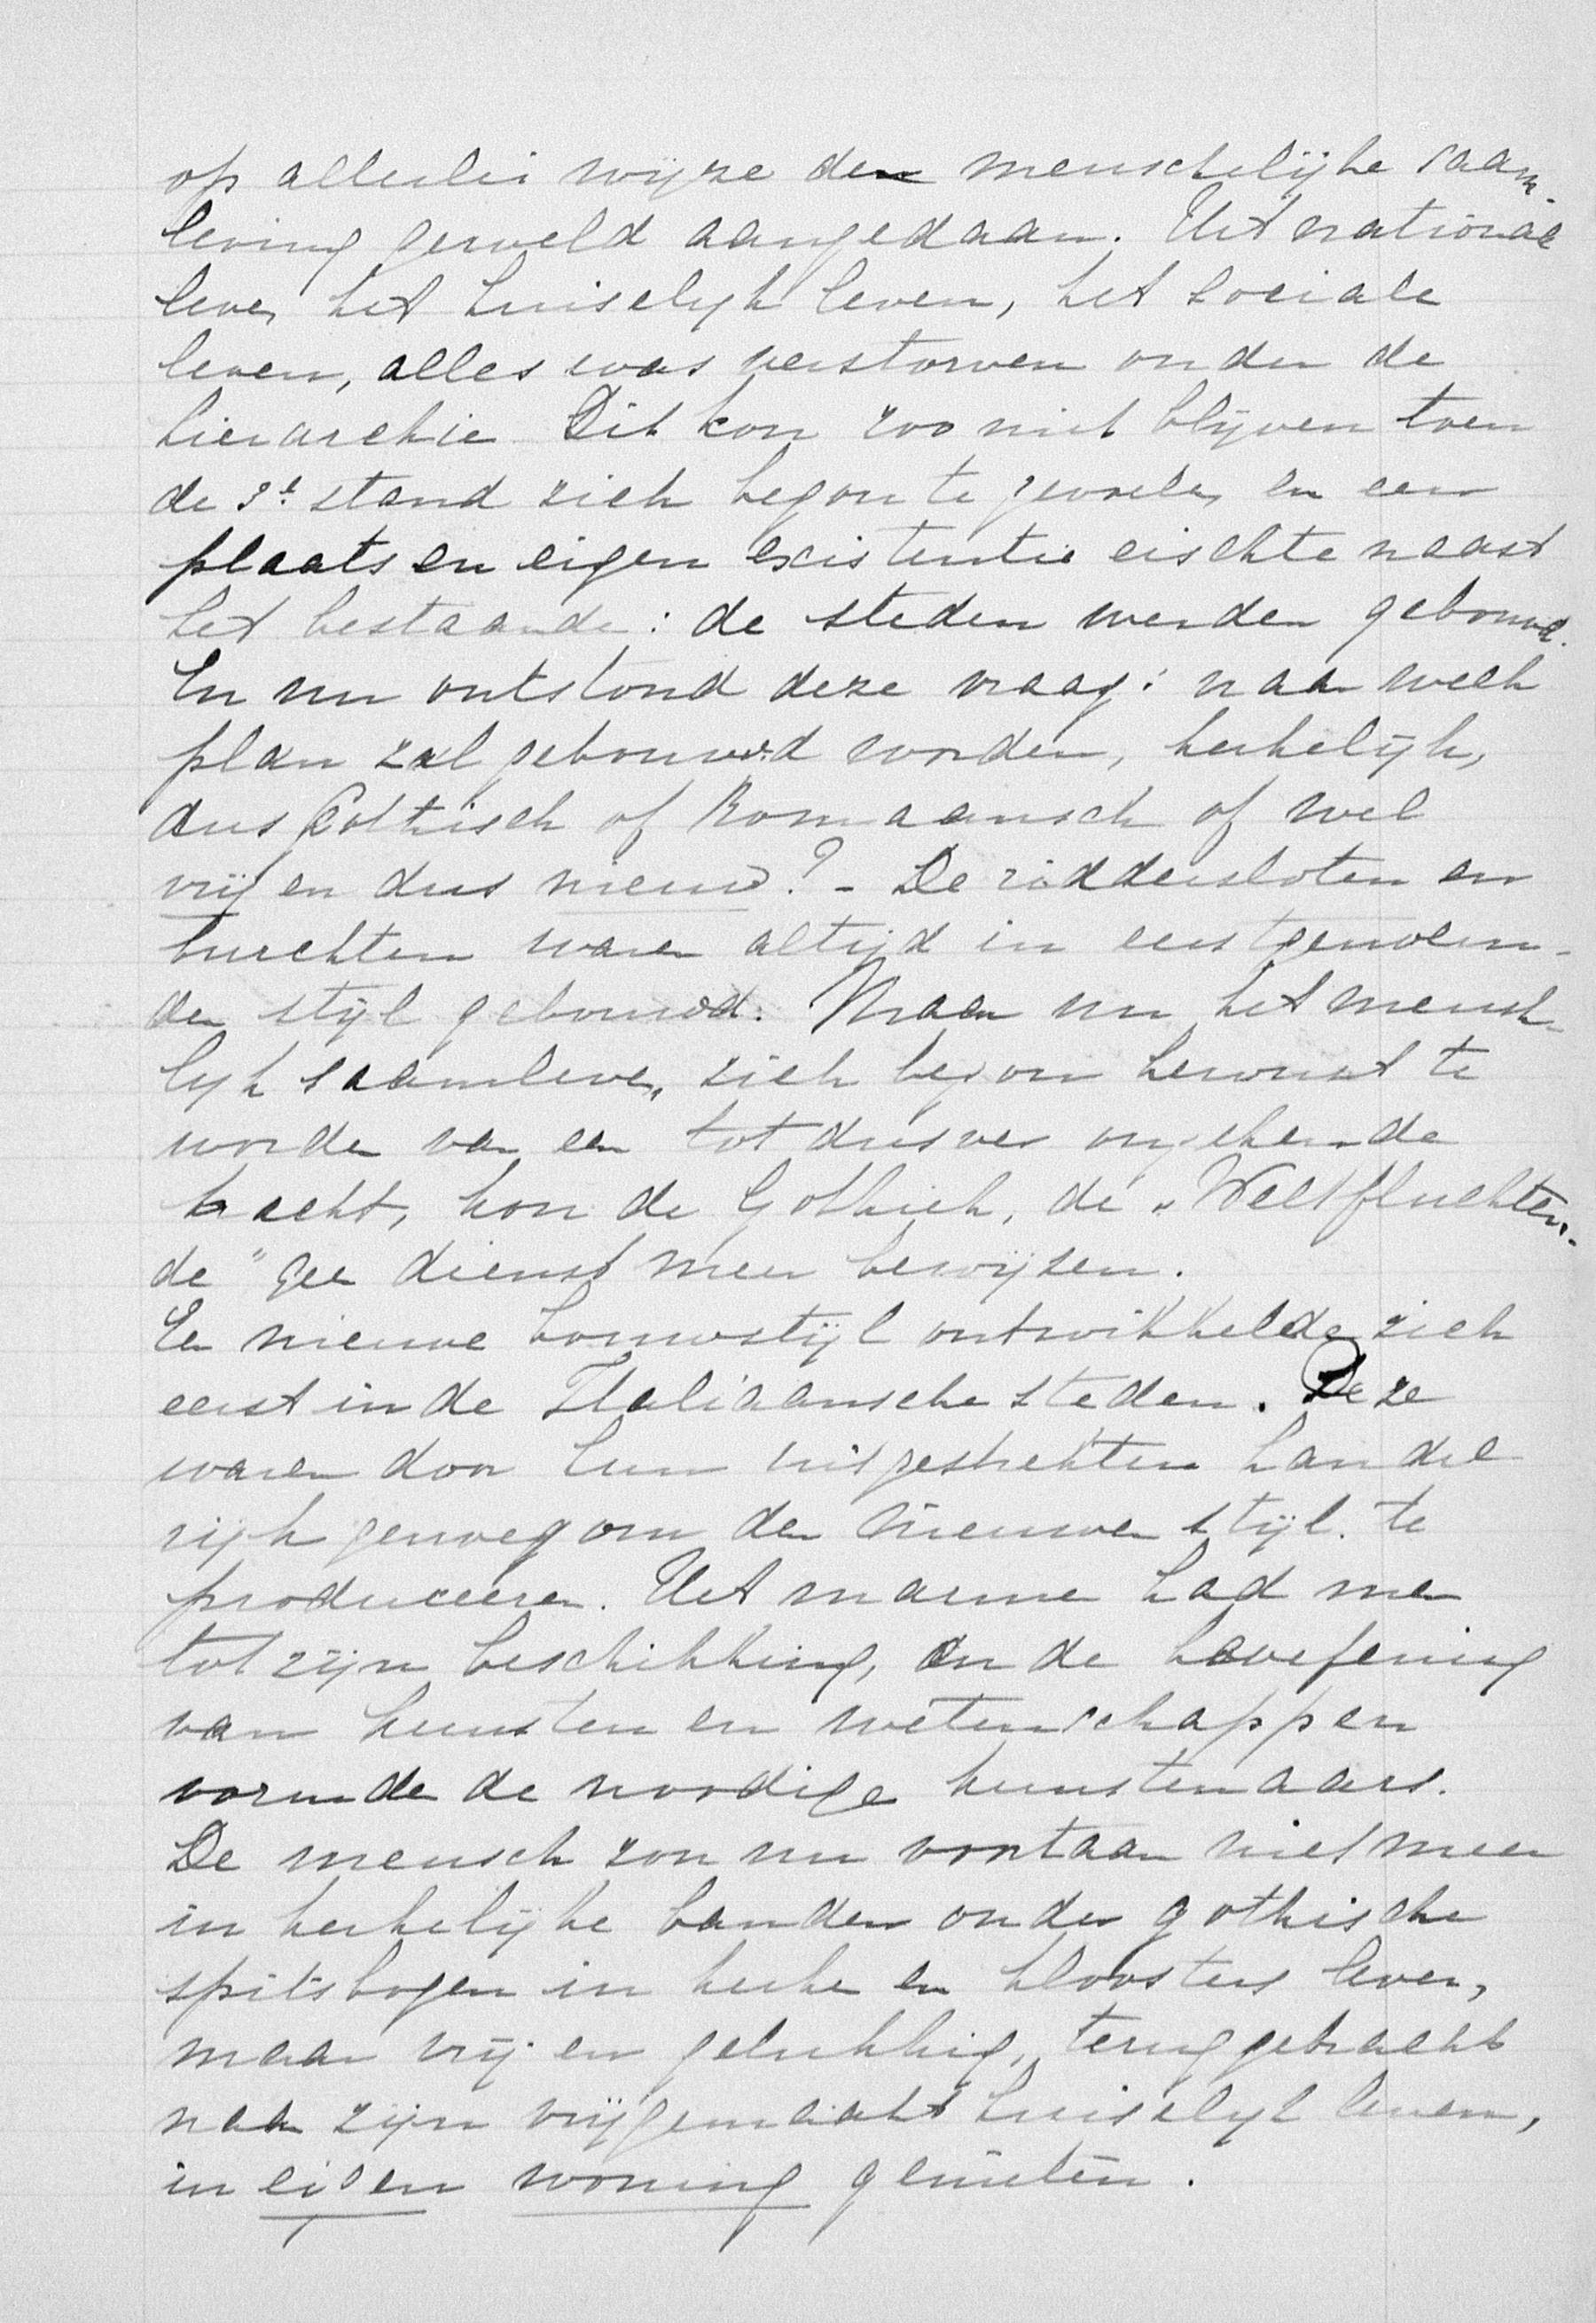 op allerlei wijze den menschelijke saam-
leving geweld aangedaan. Het nationale
leven het huiselijk leven, het sociale
leven, alles was verstorven onder de
hierarchie. Dit kon zoo niet blijven toen
de 3e stand zich begon te gevoelen en een
plaats en eigen existentie eischte naast
het bestaande: de steden werden gebouwd.
En nu ontstond deze vraag: naar welk
plan zal gebouwd worden, kerkelijk,
dus Gothisch of Romaansch of wel
vrij en dus nieuw? - De riddersloten en
burchten waren altijd in eerstgenoem-
den stijl gebouwd. Maar nu het mensch-
lijk saamleven zich begon bewust te
worden van een tot dusver ongekende
kracht, kon de Gothiek, de „Weltfluchten-
de" geen dienst meer bewijzen.
Een nieuwe bouwstijl ontwikkelde zich
eerst in de Italiaansche steden. Deze
waren door hun uitgestrekten handel
rijk genoeg om den nieuwen stijl te
produceeren. Het marmer had men
tot zijn beschikking, en de beoefening
van kunsten en wetenschappen
vormde de noodige kunstenaars.
De mensch zou nu voortaan niet meer
in kerkelijke banden onder gothische
spitsbogen in kerken en kloosters leven,
maar vrij en gelukkig, teruggebracht
naar zijn vrijgemaakt huiselijk leven,
in eigen woning genieten.